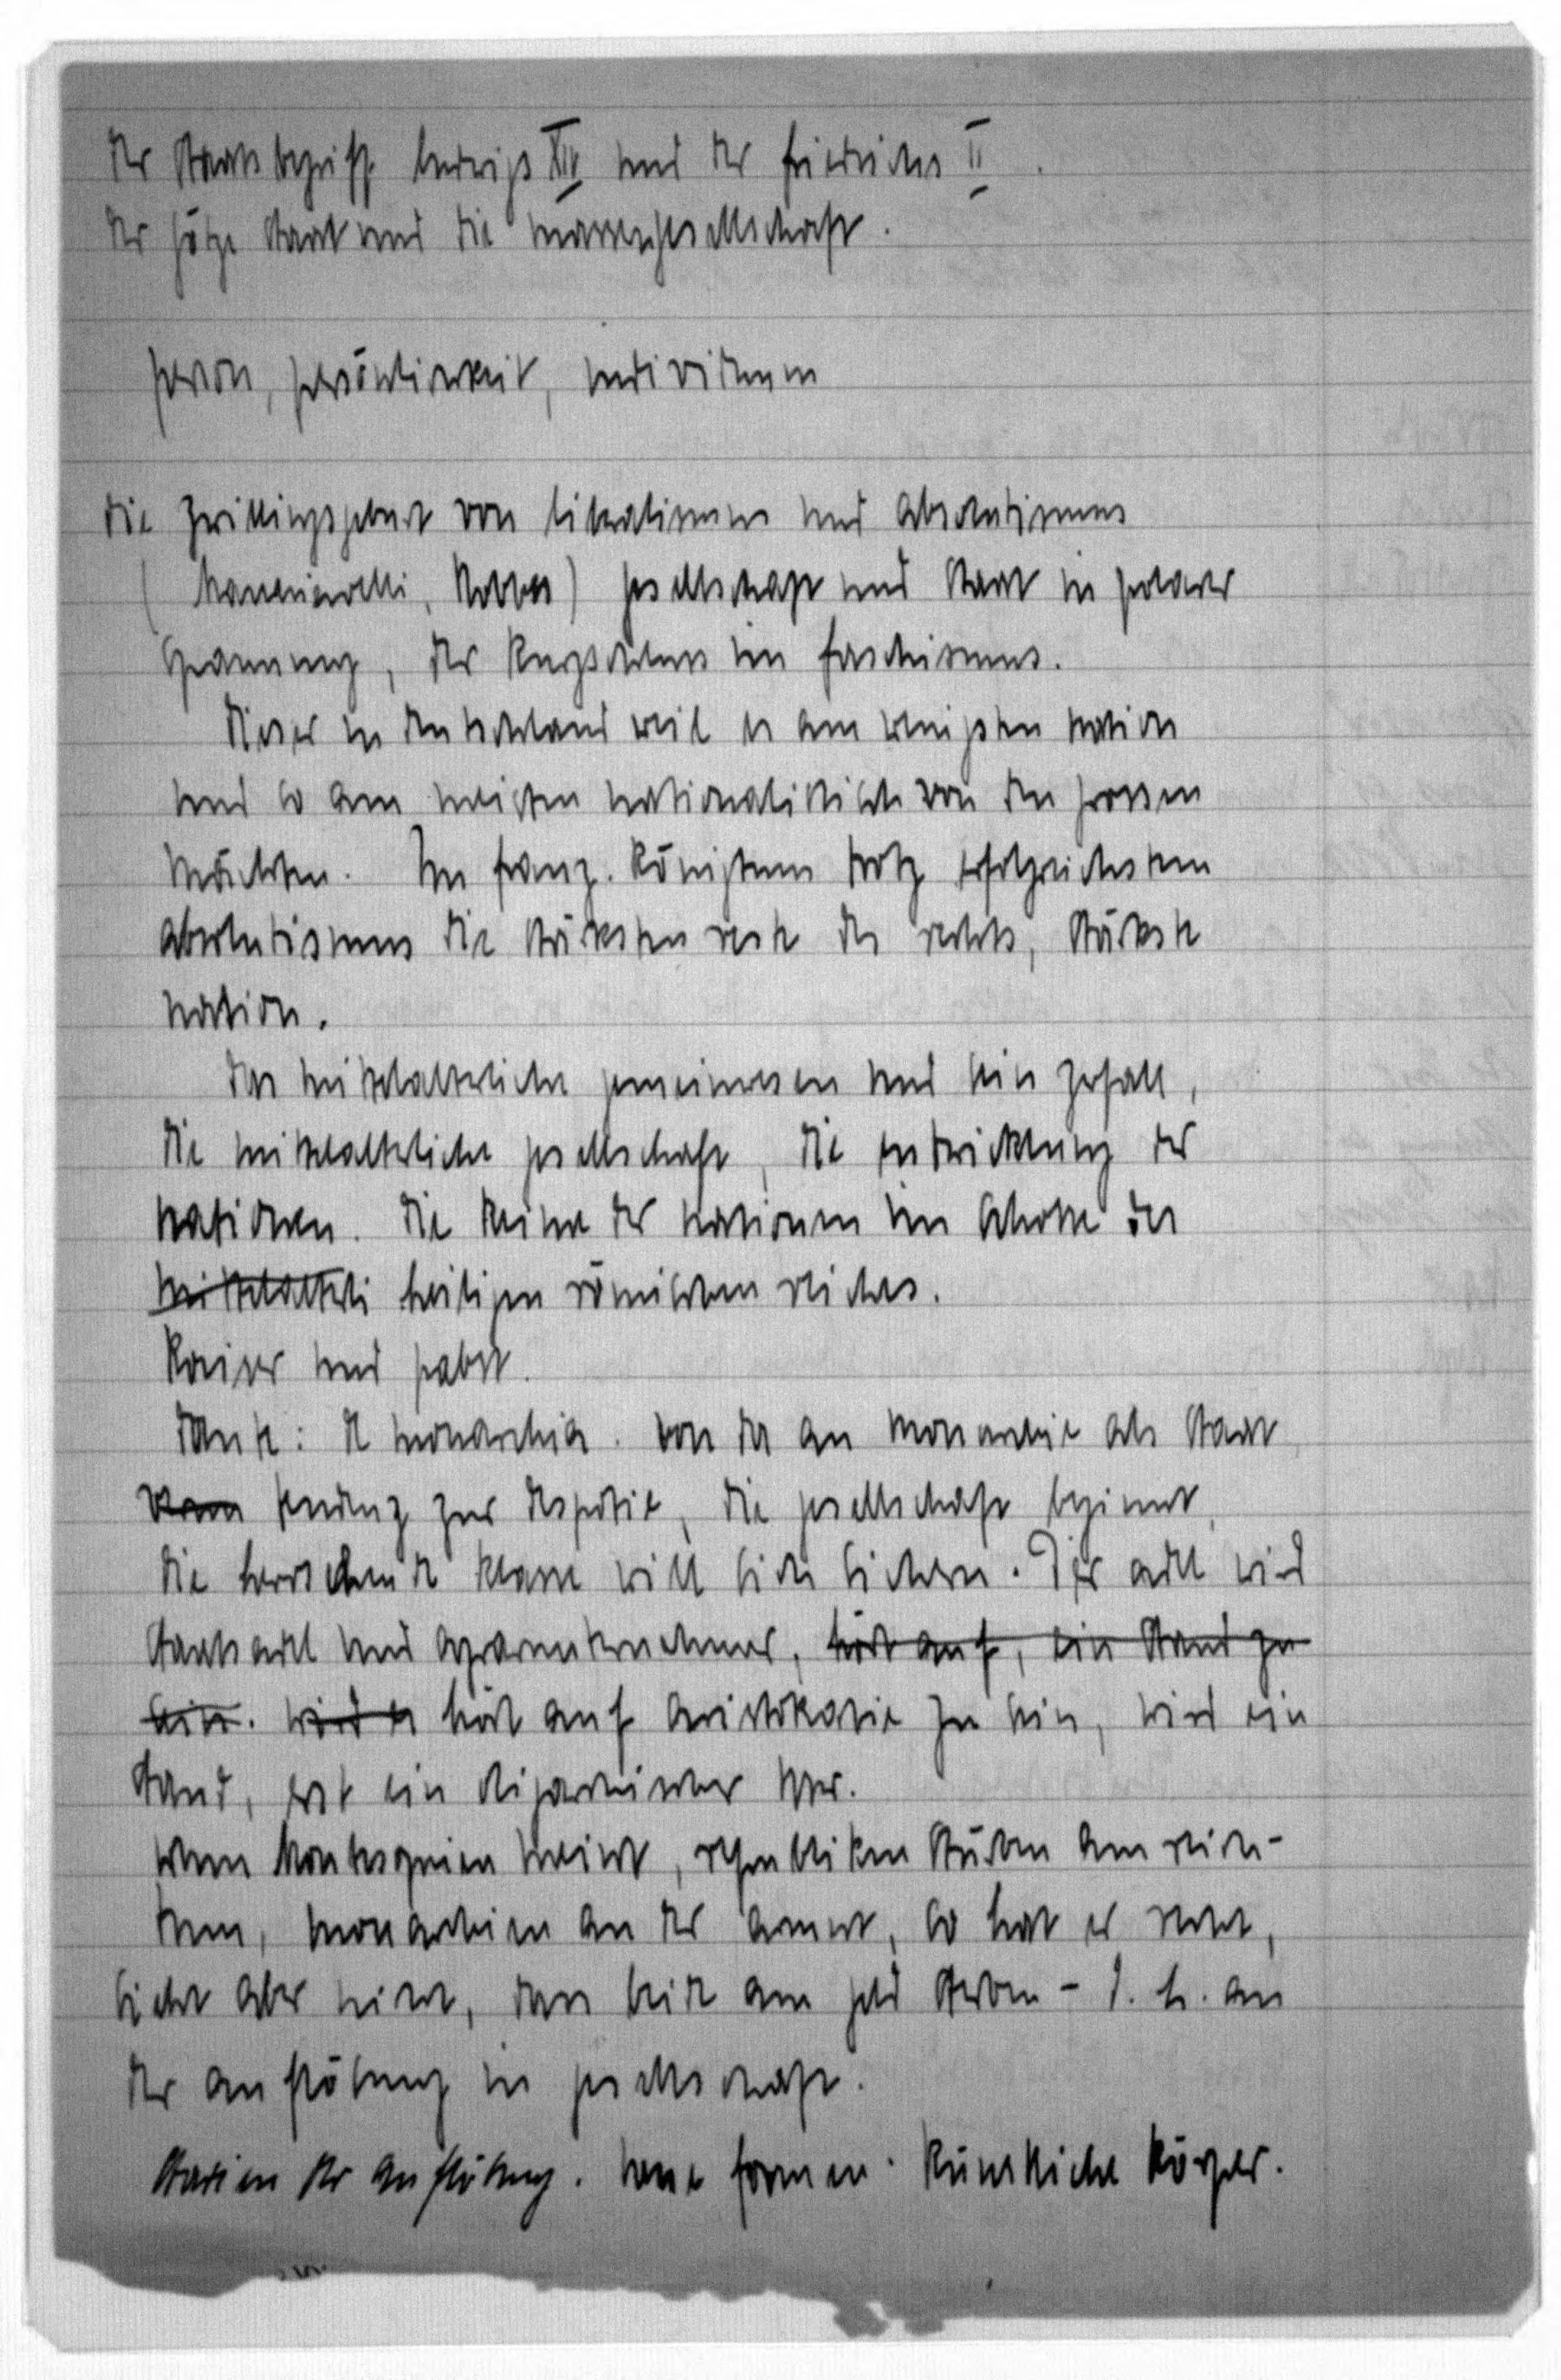 der staatsbegriff ludwigs XIV und der friedrichs II.
der götze staat und die massengesellschaft.
person, persönlichkeit, individuum
die zwillingsgeburt von liberalismus und absolutismus
(Macchiavelli, Hobbes) gesellschaft und staat in polarer
spannung, der kurzschluss im faschismus.
dieser in deutschland weil es am wenigsten nation
und so am meisten nationalistisch von den grossen
mächten. Im franz. königtum trotz erfolgreichstem
absolutismus die stärksten reste des rechts, stärkste
nation.
das mittelalterliche gemeinwesen und sein zerfall,
die mittelalterliche gesellschaft, die entwicklung der
nationen. die keime der nationen im schosse des
mittelalterli heiligen römischen reiches.
kaiser und pabst.
Dante: de monarchia. von da an monarchie als staat
tendenz zur despotie, die gesellschaft beginnt,
die herrschende klasse will sich sichern. Der adel wird
staatsadel und agrarunternehmer, hört auf, ein stand zu
sein. wird er hört auf aristokratie zu sein, wird ein
stand, erst ein oligarchischer
wenn Montesquieu meint, republiken stürben am reich-
tum, monarchien an der armut, so hat er recht,
sieht aber nicht, dass beide am geld sterben - d. h. an
der auflösung in gesellschaft.
stadien der auflösung. neue formen. künstliche körper.